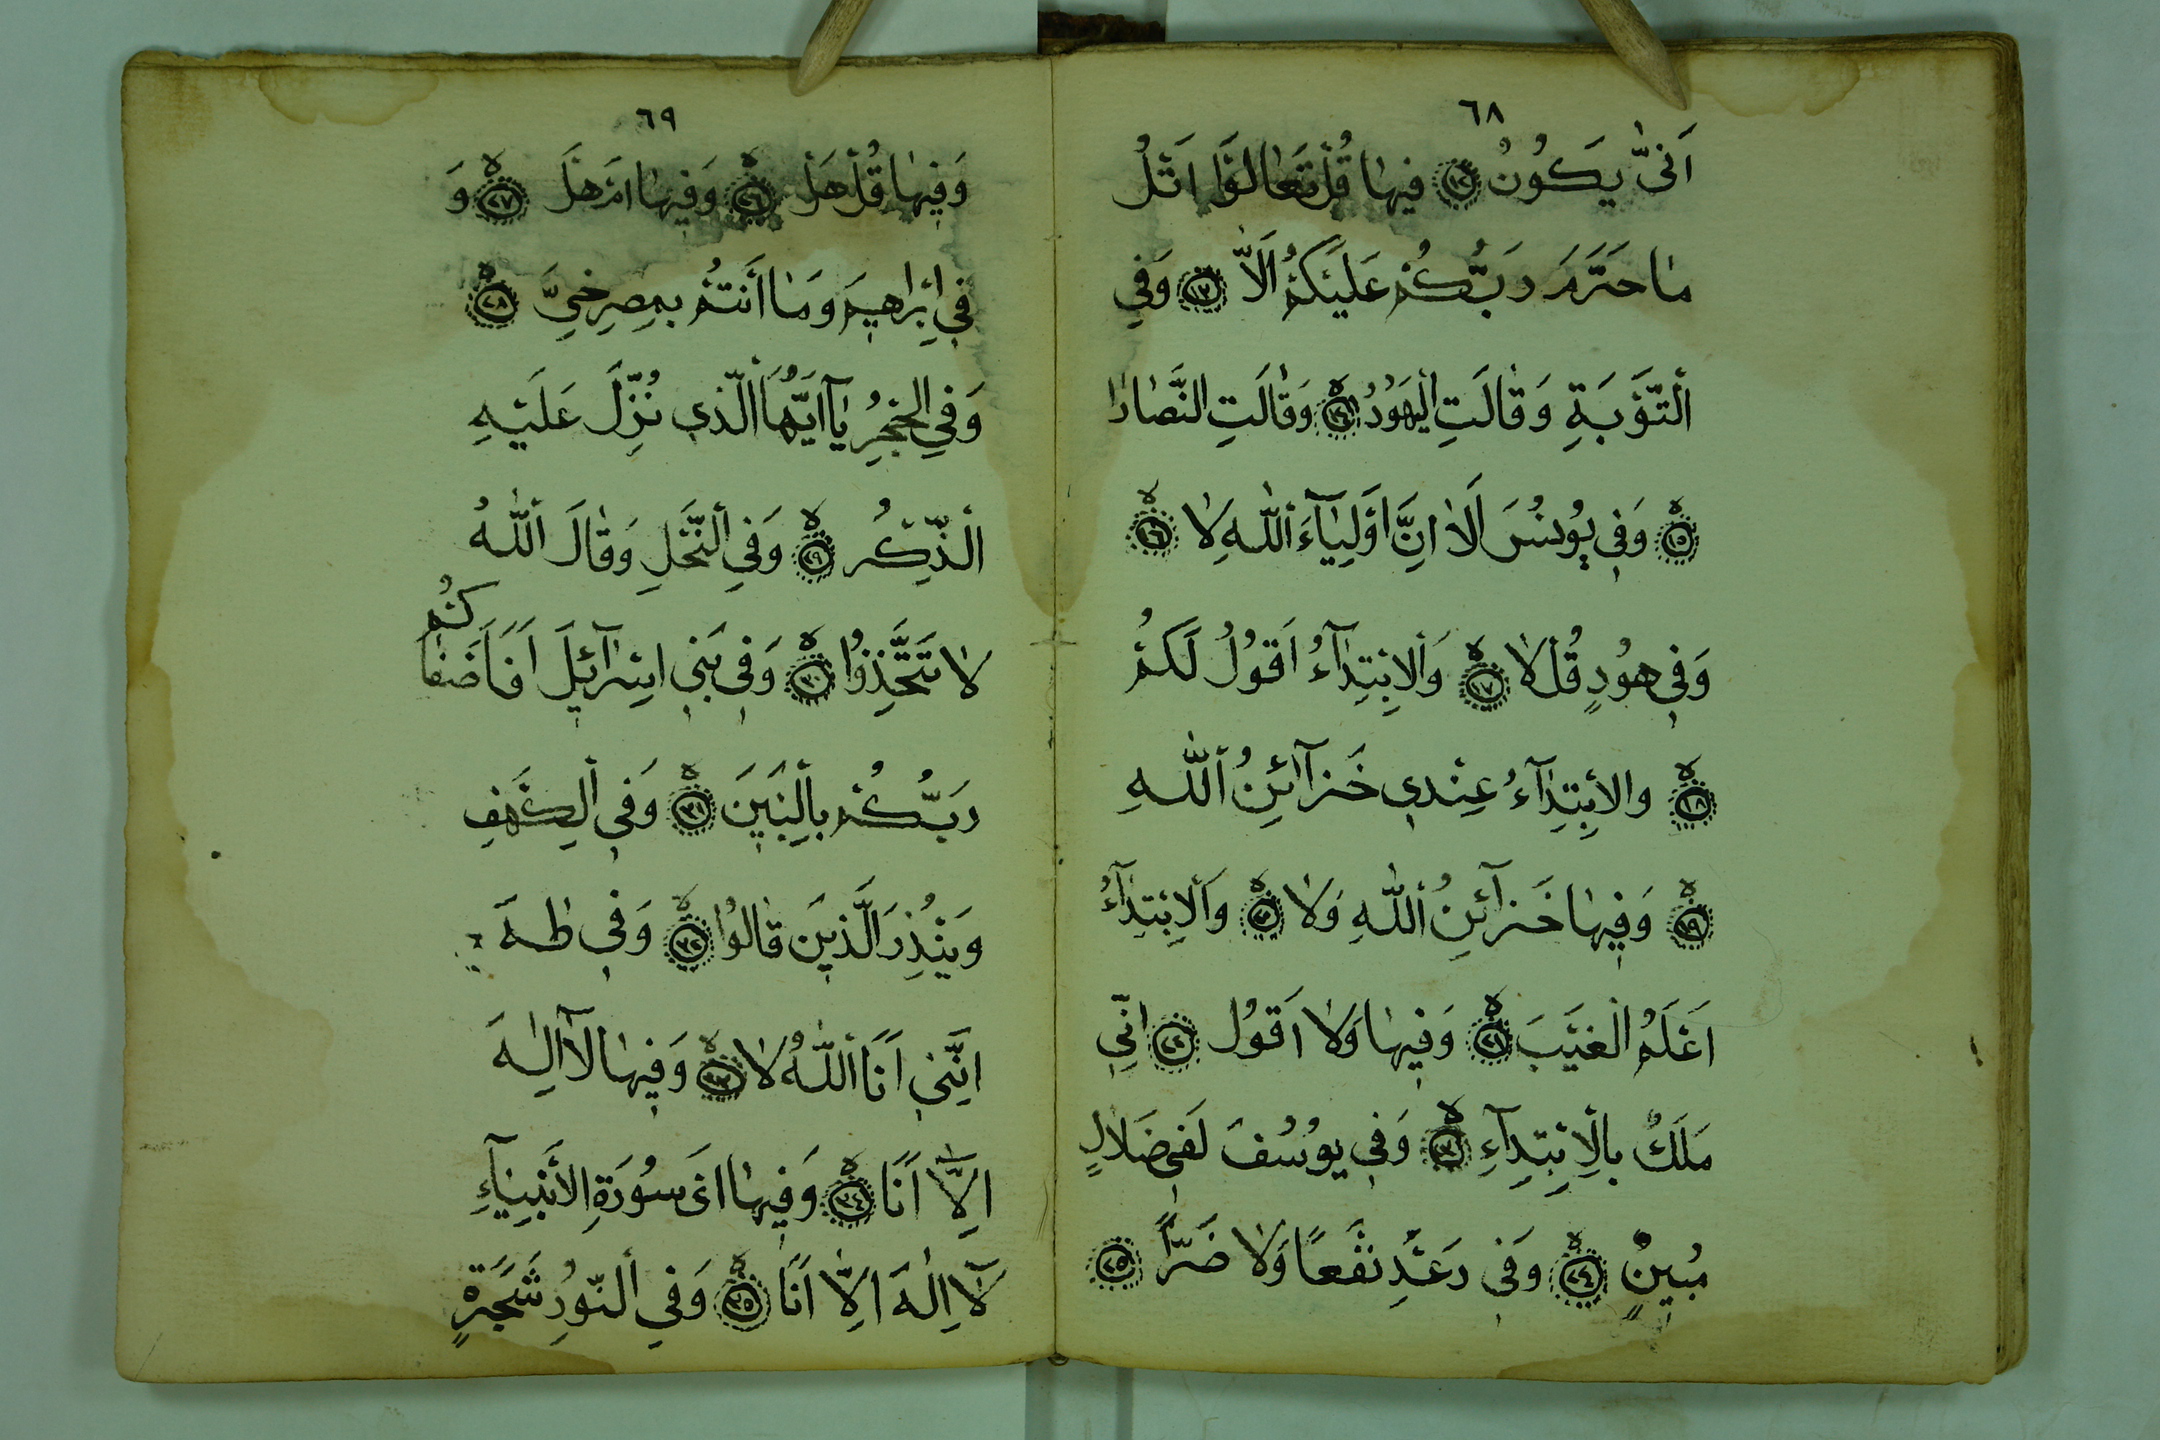 ٦٨
اَنىّٰ يَكُونُ ١٢ فيهٰا قُلْ تَعٰالَوْا اَتْلُ
مٰا حَرَّمَ رَبُّكُمْ عَلَيْكُمْ اَلاّٰ ١٣ وَفيِ
اْلتَّوْبَةِ وَقٰالَتِ اْليَهُودُ ١٤ وَقٰالَتِ النَّصٰارٰا
١٥ وَفي يُونسُ اَلاٰ اِنَّ اَوْلِيٰآءَ اْللّٰهِ لاٰ ١٦
وَفي هوُدٍ قُلْ لاٰ ١٧ وَاْلاِبْتِدٰآءُ اَقوُلُ لَكمُْ
١٨ والاْبِتِدٰآءُ عِنْدي خَزآئِنُ اْللّٰهِ
١٩ وَفيهٰا خَزآئنُِ اْللّٰهِ وَلاٰ ٢٠ وَاْلاِبْتِدٰآءُ
اَعْلَمُ الْغَيْبَ ٢١ وَفيهٰا وَلاٰ اَقوُل ٢٢ انِّي
مَلَكٌ باِلْاِبْتِدٰآءِ ٢٣ وَفي يوُسُفَ لَفي ضَلاٰلٍ
مُبينٍ ٢٤ وَفي رَعْدِ نَفْعًا وَلاٰ ضَرًّا ٢٥
٦٩
وَفيهٰا قُلْ هَلْ ٢٦ وَفيهٰا اَمْ هَلْ ٢٧ وَ
في اِبْراهيمَ وَمٰا اَنتُمْ بمِصرِخيَِّ ٢٨
وَفيِ الحِجْرِ يٰآ اَيُّهَا اْلَّذي نُزِّلَ عَلَيْهِ
اْلذِّكْر ٢٩ وَفيِ اْلنَّحْلِ وَقٰالَ اْللّٰهُ
لاٰ تَتَّخِذوُا ٣٠ وَفي بَني اسِْرٰآئيلَ اَفَاَصْفٰاكمُْ
رَبُّكُمْ باِلْبَنينَ ٣١ وَفي اْلكَهْفِ
وَيُنْذِرَ الَّذينَ قٰالوُا ٣٢ وَفي طٰهَ
اِنَّني اَنَا اْللّٰهُ لاٰ ٣٣ وَفيهٰا لآ اِلٰهَ
اِلاّٰ اَنَا ٣٤ وَفيهٰا اىَ سوُرَةِ الْاَنْبِيٰآءِ
لآ اِلٰهَ اِلاّٰ اَنَا ٣٥ وَفيِ اْلنّوُرِ شَجَرَةٍ